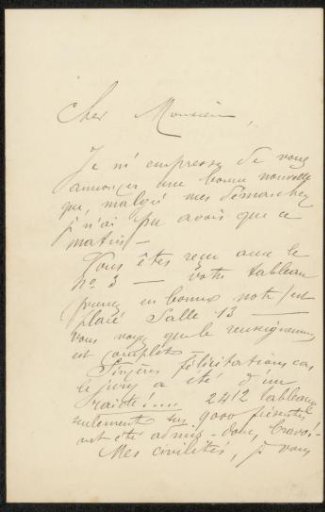 Cher Monsieur,
Je m'empresse de vous
annoncer une bonne nouvelle
que, malgré mes démarches
je n'ai pu avoir que ce
matin —
Vous êtes reçu avec le
No. 3 — votre tableau
prenez en bonne note / est
placé Salle 13 —
Vous voyez que le renseignement
est complet
Sincères félicitations car
le jury a été d'une
raideur!... 2412 tableaux
seulement sur 9000 présentés
ont été admis - donc, bravo! -
Mes civilités, je vous